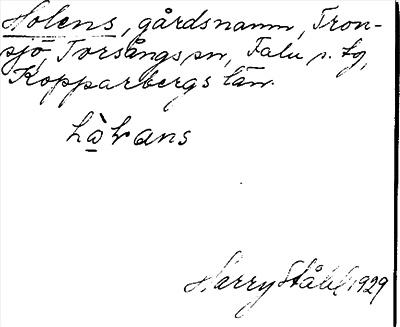 Holens, gårdsnamn, Tron-
sjö, Torsångs sn, Falu s. tg,
Kopparbergs län.
Harry Ståhl 1929